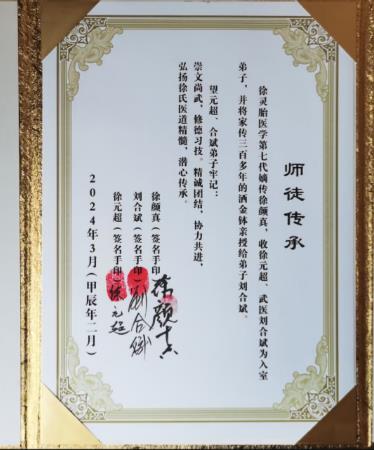 师徒传承
徐灵胎医学第七代嫡传徐颜真，收徐元超、武医刘合斌为入室
弟子，并将家传三百多年的洒金钵亲授给弟子刘合斌。
望元超、合斌弟子牢记：
崇文尚武，修德习技。精诚团结，协力共进，
弘扬徐氏医道精髓，潜心传承。
徐颜真（签名手印） 徐颜真
刘合斌（签名手印） 刘合斌
徐元超（签名手印） 徐元超
2024年3月（甲辰年二月）